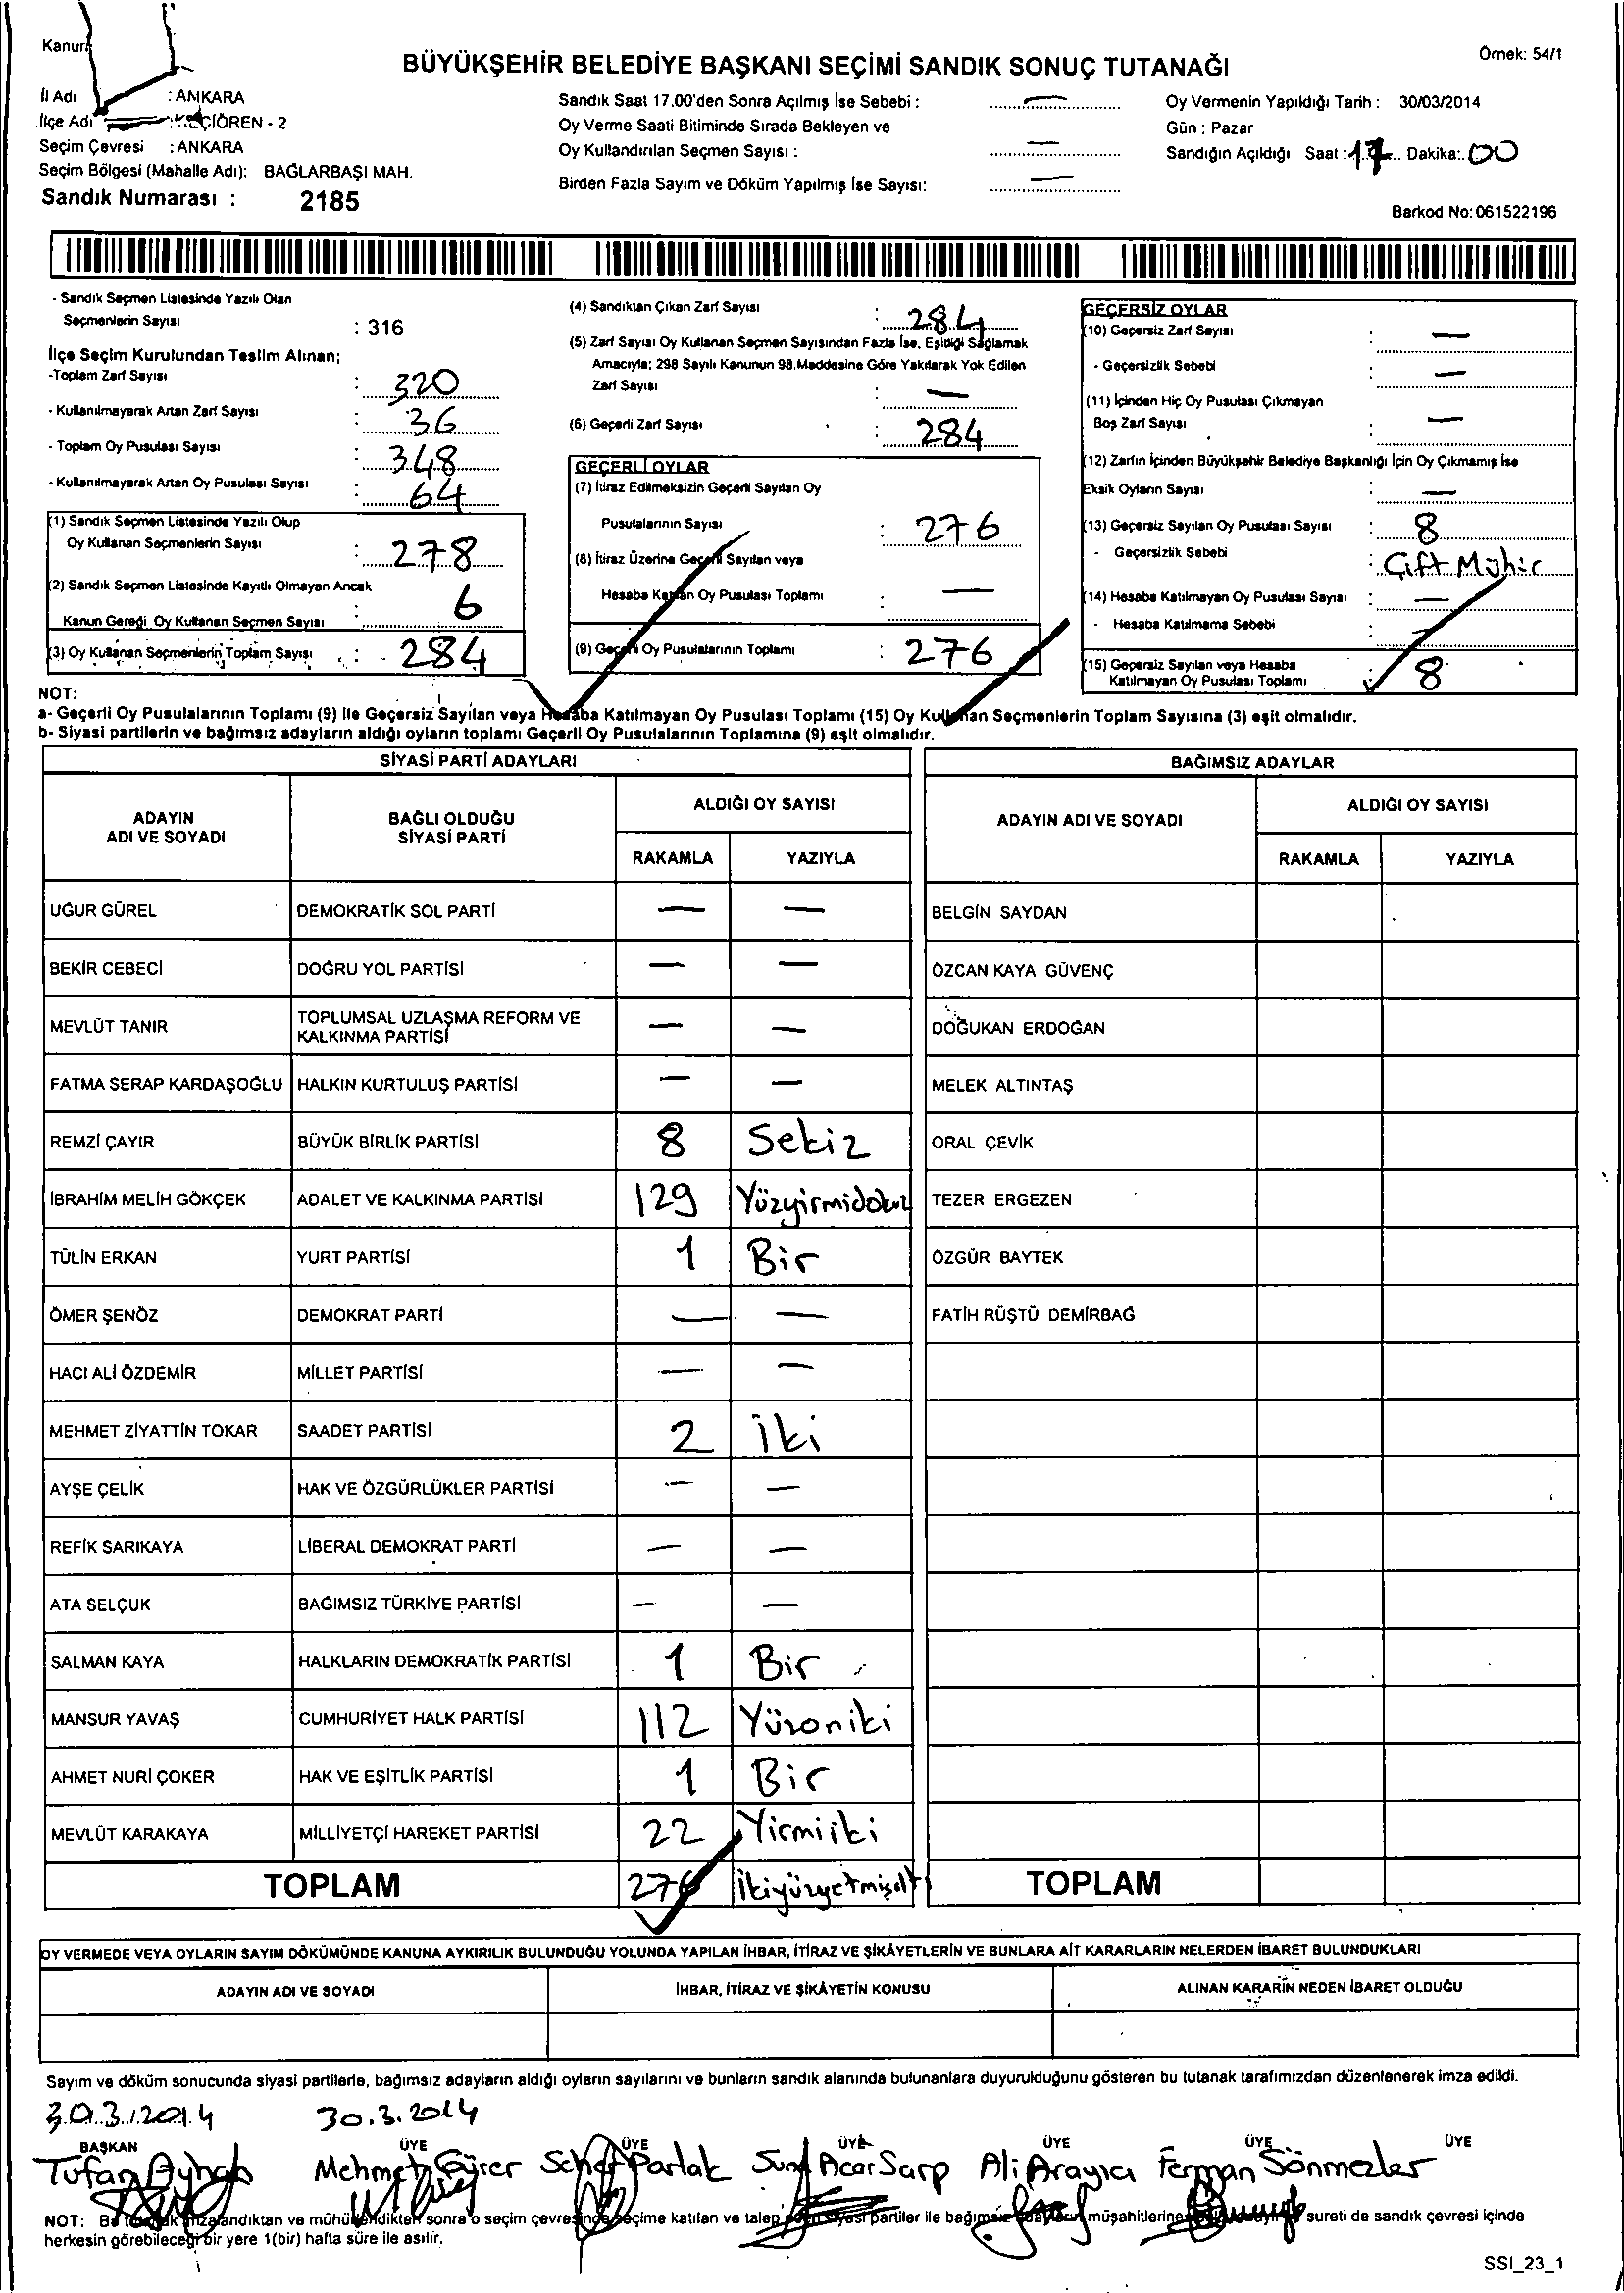 Kanun
Örnek: 54/1
BÜYÜKŞEHİR BELEDİYE BAŞKANI SEÇİMİ SANDIK SONUÇ TUTANAĞI
İl Adı : ANKARA
İlçe Adı : KEÇİÖREN - 2
Seçim Çevresi : ANKARA
Seçim Bölgesi (Mahalle Adı): BAĞLARBAŞI MAH.
Sandık Numarası : 2185
Sandık Saat 17.00'den Sonra Açılmış İse Sebebi : —
Oy Verme Saati Bitiminde Sırada Bekleyen ve
Oy Kullandırılan Seçmen Sayısı : —
Birden Fazla Sayım ve Döküm Yapılmış İse Sayısı: —
Oy Vermenin Yapıldığı Tarih : 30/03/2014
Gün : Pazar
Sandığın Açıldığı Saat : 17 Dakika: 00
Barkod No: 061522196
- Sandık Seçmen Listesinde Yazılı Olan
Seçmenlerin Sayısı : 316
İlçe Seçim Kurulundan Teslim Alınan;
-Toplam Zarf Sayısı : 320
- Kullanılmayarak Artan Zarf Sayısı : 36
- Toplam Oy Pusulası Sayısı : 348
- Kullanılmayarak Artan Oy Pusulası Sayısı : 64
(1) Sandık Seçmen Listesinde Yazılı Olup
Oy Kullanan Seçmenlerin Sayısı : 278
(2) Sandık Seçmen Listesinde Kayıtlı Olmayan Ancak
Kanun Gereği Oy Kullanan Seçmen Sayısı : 6
(3) Oy Kullanan Seçmenlerin Toplam Sayısı : 284
(4) Sandıktan Çıkan Zarf Sayısı : 284
(5) Zarf Sayısı Oy Kullanan Seçmen Sayısından Fazla İse, Eşitliği Sağlamak
Amacıyla; 298 Sayılı Kanunun 98.Maddesine Göre Yakılarak Yok Edilen
Zarf Sayısı : —
(6) Geçerli Zarf Sayısı : 284
GEÇERLİ OYLAR
(7) İtiraz Edilmeksizin Geçerli Sayılan Oy
Pusulalarının Sayısı : 276
(8) İtiraz Üzerine Geçerli Sayılan veya
Hesaba Katılan Oy Pusulası Toplamı : —
(9) Geçerli Oy Pusulalarının Toplamı : 276
GEÇERSİZ OYLAR
(10) Geçersiz Zarf Sayısı : —
- Geçersizlik Sebebi : —
(11) İçinden Hiç Oy Pusulası Çıkmayan
Boş Zarf Sayısı : —
(12) Zarfın İçinden Büyükşehir Belediye Başkanlığı İçin Oy Çıkmamış İse
Eksik Oyların Sayısı : —
(13) Geçersiz Sayılan Oy Pusulası Sayısı : 8
- Geçersizlik Sebebi : Çift Mühir
(14) Hesaba Katılmayan Oy Pusulası Sayısı : —
- Hesaba Katılmama Sebebi : —
(15) Geçersiz Sayılan veya Hesaba
Katılmayan Oy Pusulası Toplamı : 8
NOT:
a- Geçerli Oy Pusulalarının Toplamı (9) İle Geçersiz Sayılan veya Hesaba Katılmayan Oy Pusulası Toplamı (15) Oy Kullanan Seçmenlerin Toplam Sayısına (3) eşit olmalıdır.
b- Siyasi partilerin ve bağımsız adayların aldığı oyların toplamı Geçerli Oy Pusulalarının Toplamına (9) eşit olmalıdır.
SİYASİ PARTİ ADAYLARI
ADAYIN ADI VE SOYADI
BAĞLI OLDUĞU SİYASİ PARTİ
ALDIĞI OY SAYISI
RAKAMLA YAZIYLA
UĞUR GÜREL DEMOKRATİK SOL PARTİ — —
BEKİR CEBECİ DOĞRU YOL PARTİSİ — —
MEVLÜT TANIR TOPLUMSAL UZLAŞMA REFORM VE KALKINMA PARTİSİ — —
FATMA SERAP KARDAŞOĞLU HALKIN KURTULUŞ PARTİSİ — —
REMZİ ÇAYIR BÜYÜK BİRLİK PARTİSİ 8 Sekiz
İBRAHİM MELİH GÖKÇEK ADALET VE KALKINMA PARTİSİ 129 Yüzyirmidokuz
TÜLİN ERKAN YURT PARTİSİ 1 Bir
ÖMER ŞENÖZ DEMOKRAT PARTİ — —
HACI ALİ ÖZDEMİR MİLLET PARTİSİ — —
MEHMET ZİYATTİN TOKAR SAADET PARTİSİ 2 İki
AYŞE ÇELİK HAK VE ÖZGÜRLÜKLER PARTİSİ — —
REFİK SARIKAYA LİBERAL DEMOKRAT PARTİ — —
ATA SELÇUK BAĞIMSIZ TÜRKİYE PARTİSİ — —
SALMAN KAYA HALKLARIN DEMOKRATİK PARTİSİ 1 Bir
MANSUR YAVAŞ CUMHURİYET HALK PARTİSİ 112 Yüzoniki
AHMET NURİ ÇOKER HAK VE EŞİTLİK PARTİSİ 1 Bir
MEVLÜT KARAKAYA MİLLİYETÇİ HAREKET PARTİSİ 22 Yirmiiki
TOPLAM 276 İkiyüzyetmişaltı
BAĞIMSIZ ADAYLAR
ADAYIN ADI VE SOYADI
ALDIĞI OY SAYISI
RAKAMLA YAZIYLA
BELGİN SAYDAN
ÖZCAN KAYA GÜVENÇ
DOĞUKAN ERDOĞAN
MELEK ALTINTAŞ
ORAL ÇEVİK
TEZER ERGEZEN
ÖZGÜR BAYTEK
FATİH RÜŞTÜ DEMİRBAĞ
TOPLAM
OY VERMEDE VEYA OYLARIN SAYIM DÖKÜMÜNDE KANUNA AYKIRILIK BULUNDUĞU YOLUNDA YAPILAN İHBAR, İTİRAZ VE ŞİKÂYETLERİN VE BUNLARA AİT KARARLARIN NELERDEN İBARET BULUNDUKLARI
ADAYIN ADI VE SOYADI İHBAR, İTİRAZ VE ŞİKÂYETİN KONUSU ALINAN KARARIN NEDEN İBARET OLDUĞU
Sayım ve döküm sonucunda siyasi partilerle, bağımsız adayların aldığı oyların sayılarını ve bunların sandık alanında bulunanlara duyurulduğunu gösteren bu tutanak tarafımızdan düzenlenerek imza edildi.
30.3.2014 30.3.2014
BAŞKAN ÜYE ÜYE ÜYE ÜYE ÜYE ÜYE
Tufan Ayhan Mehmet Gürer Parlak Acar Sarp Ali Arayıcı Ferman Sönmezler
NOT: Bu tutanak imzalandıktan ve mühürlendikten sonra o seçim çevresinde seçime katılan ve talep eden siyasi partiler ile bağımsız müşahitlerine sureti de sandık çevresi içinde
herkesin görebileceği bir yere 1(bir) hafta süre ile asılır.
SSI_23_1